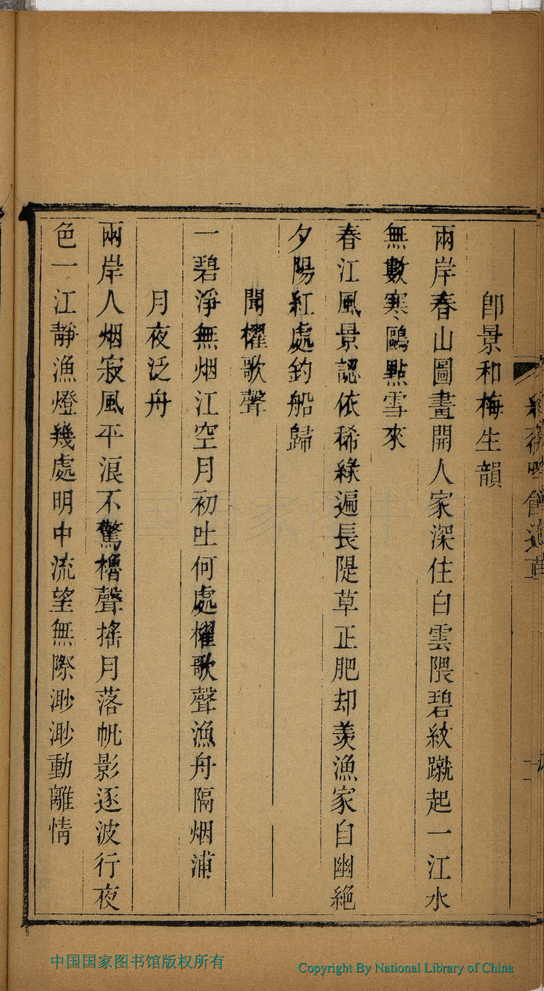 即景和梅生韻
兩岸春山圖畫開人家深住白雲隈碧紋蹴起一江水
無數寒鷗點雪來
春江風景認依稀綠遍長隄草正肥却羡漁家自幽絕
夕陽紅處釣船歸
聞櫂歌聲
一碧淨無烟江空月初吐何處櫂歌聲漁舟隔烟浦
月夜泛舟
兩岸人烟寂風平浪不驚櫓聲搖月落帆影逐波行夜
色一江靜漁燈幾處明中流望無際渺渺動離情
中国国家图书馆版权所有
Copyright By National Library of China